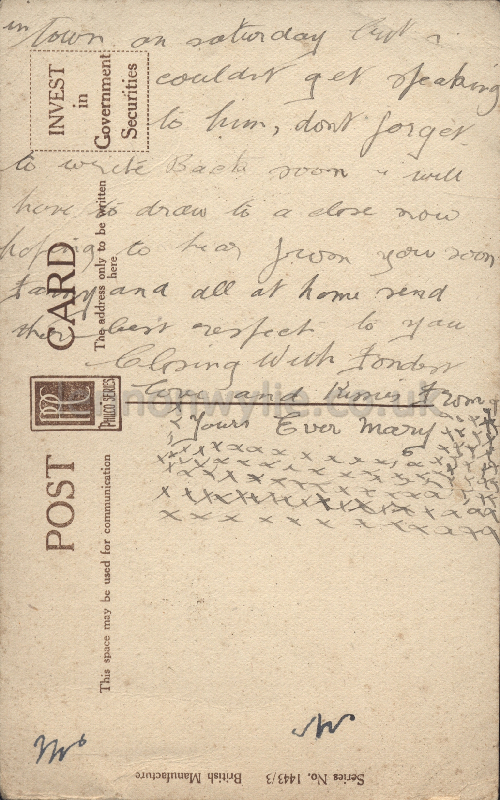 in town on saturday but i
couldnt get speaking
to him, dont forget
to write Back soon i will
have to draw to a close now
hoping to hear from you soon
Fanny and all at home send
their best respect to you
Closing With Fondest
Love and Kisses From
Yours Ever Mary
x x x x x x x x x x x x
INVEST
in
Government
Securities
POST CARD
The address only to be written
here.
PHILCO SERIES
This space may be used for communication
Series No. 1443/3 British Manufacture
nonwylie.co.uk